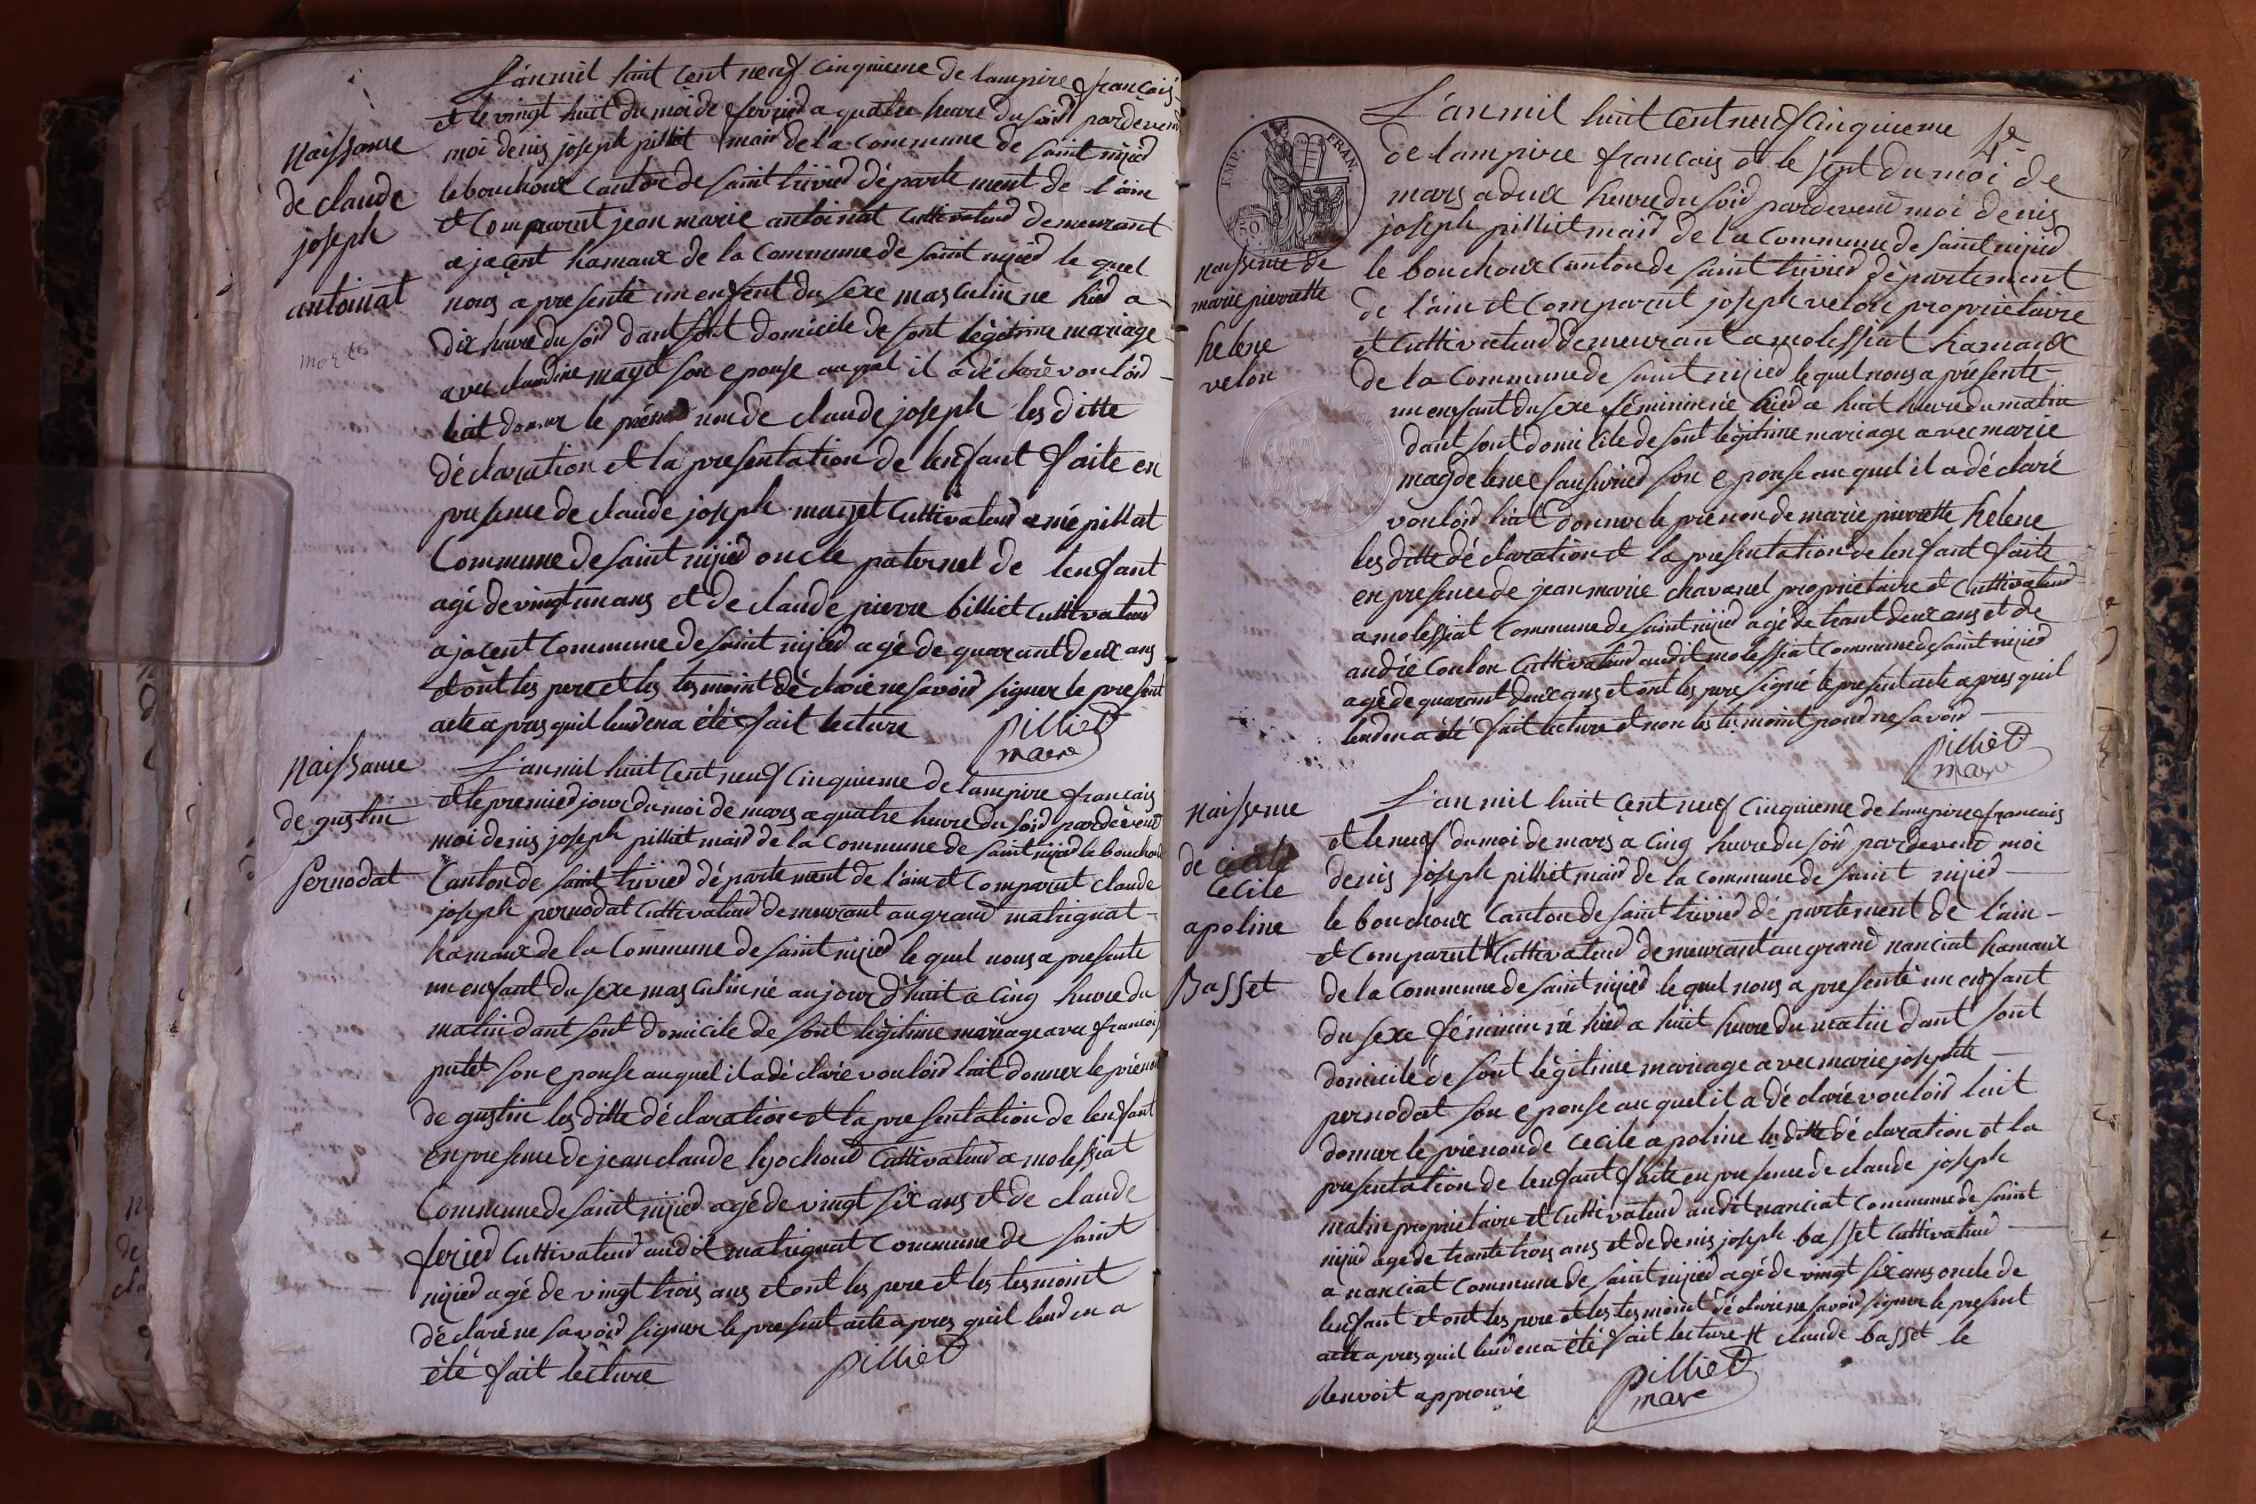 Naissance
de claude
joseph
antoinat
mort
L'an mil huit cent neuf cinquieme de lampire francois
et le vingt huit du moi de fevried a quatre heure du soid pardevend
moi denis joseph pilliet maid de la commune de saint nizied
le bouchoux canton de saint trivied département de l'ain
et comparut jean marie antoinat cultivateud demeurant
a jacent hamaux de la commune de saint nizied le quel
nous a presenté un enfent du sexe masculin ne hied a
dix heure du soid dant sont domicile de sont légitime mariage
avec claudine mazet son epouse auquel il a déclaré vouloid
luit donner le prénon de claude joseph les ditte
déclaration et la presentation de lenfant faite en
presence de claude joseph mazet cultivateud a mépillat
commune de saint nizied oncle paternel de lenfant
agé de vingt un ans et de claude pierre billiet cultivateud
a jacent commune de saint nizied agé de quarant deux ans
et ont les pere et les tesmoint déclaré ne savoid signer le present
acte a pres quil leud en a été fait lecture
pilliet
mare
Naissance
de gustin
pernodat
L'an mil huit cent neuf cinquieme de lampire francais
et le premied jour du moi de mars a quatre heure du soid pardevend
moi denis joseph pilliat maid de la commune de saint nizied le bouchoux
canton de saint trivied département de l'ain et comparut claude
joseph pernodat cultivateud demeurant au grand matrignat
hamaux de la commune de saint nizied le quel nous a presenté
un enfant du sexe masculin né aujourd'huit a cinq heure du
matin dant sont domicile de sont légitime mariage avec francois
putet son epouse auquel il a déclaré vouloid luit donner le prénon
de gustin les ditte déclaration et la presentation de lenfant
en presence de jean claude lyochoud cultivateud a molessiat
commune de saint nizied agé de vingt six ans et de claude
feried cultivateud audit matrignat commune de saint
nizied agé de vingt trois ans et ont les pere et les tesmoint
déclaré ne savoid signer le present acte a pres quil leud en a
été fait lecture
pilliet
EMP. FRAN.
50
naissence de
marie pierrette
helene
velon
L'an mil huit cent neuf cinquieme
de lampire francais et le sept du moi de
mars a deux heure du soid pardevend moi denis
joseph pilliet maid de la commune de saint nizied
le bouchoux canton de saint trivied département
de l'ain et comparut joseph velon proprietaire
et cultivateud demeurant a molessiat hamaux
de la commune de saint nizied le quel nous a presenté
un enfant du sexe féminin né hied a huit heure du matin
dant sont domicile de sont légitime mariage avec marie
magdelene son epouse auquel il a déclaré
vouloid luit donner le prénon de marie pierrette helene
les ditte déclaration et la presentation de lenfant faite
en presence de jean marie chavanel proprietaire et cultivateud
a molessiat commune de saint nizied agé de trant deux ans et de
andré coulon cultivateud audit molessiat commune de saint nizied
agé de quarant deux ans et ont les pere signé le present acte a pres quil
leud en a été fait lecture et non les tesmoint pour ne savoid
pilliet
mare
Naissence
de
cecile
apoline
Basset
L'an mil huit cent neuf cinquieme de lampire francais
et le neuf du moi de mars a cinq heure du soid pardevend moi
denis joseph pilliet maid de la commune de saint nizied
le bouchoux canton de saint trivied département de l'ain
et comparut # cultivateud demeurant au grand nanciat hamaux
de la commune de saint nizied le quel nous a presenté un enfant
du sexe féminin né hied a huit heure du matin dant sont
domicile de sont légitime mariage avec marie josephte
pernodat son epouse auquel il a déclaré vouloid luit
donner le prénon de cecile apoline les ditte déclaration et la
presentation de lenfant faite en presence de claude joseph
matin proprietaire et cultivateud audit nanciat commune de saint
nizied agé de trante trois ans et de denis joseph basset cultivateud
a nanciat commune de saint nizied agé de vingt six ans oncle de
lenfant et ont les pere et les tesmoint déclaré ne savoid signer le present
acte a pres quil leud en a été fait lecture # claude basset le
Renvoit approuvé
pilliet
mare